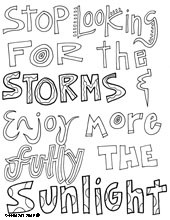 Stop Looking
FOR the
STORMS &
Enjoy more
fully THE
Sunlight